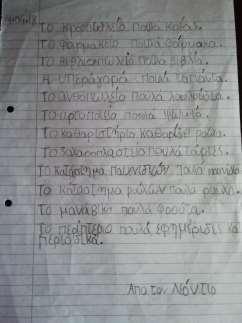 Το κρεοπωλείο πουλά κρέας.
Το φαρμακείο πουλά φάρμακα.
Το βιβλιοπωλείο πουλά βιβλία.
Η υπεραγορά πουλά
Το ανθοπωλείο πουλά λουλούδια.
Το αρτοποιείο πουλά ψωμιά.
Το καθαριστήριο καθαρίζει ρούχα.
Το ζαχαροπλαστείο πουλά τούρτες.
Το κατάστημα παιχνιδιών πουλά παιχνίδια
Το κατάστημα ρούχων πουλά ρούχα.
Το μανάβικο πουλά φρούτα.
Το περίπτερο πουλά εφημερίδες και
περιοδικά.
Από τον Λεόντιο